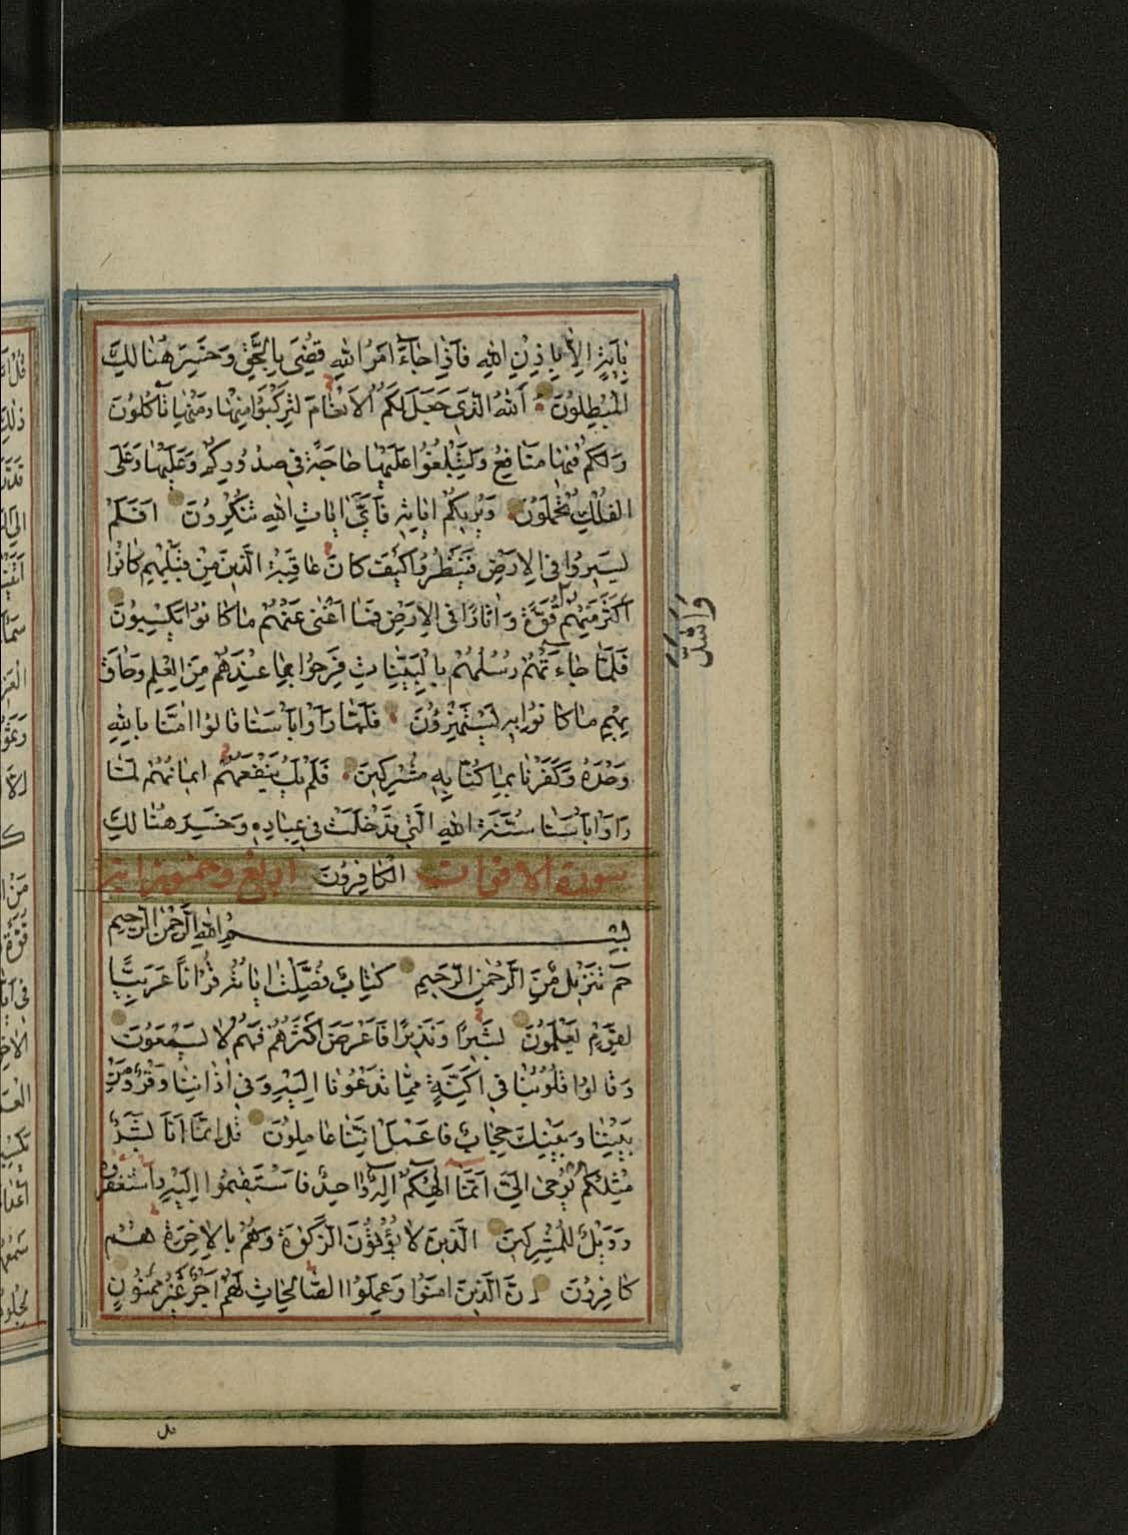 بِاٰيَةٍ اِلَّا بِاِذْنِ اللّٰهِ فَاِذَا جَاۤءَ اَمْرُ اللّٰهِ قُضِىَ بِالْحَقِّ وَخَسِرَ هُنَالِكَ
الْمُبْطِلُونَ اَللّٰهُ الَّذِى جَعَلَ لَكُمُ الْاَنْعَامَ لِتَرْكَبُوا مِنْهَا وَمِنْهَا تَأْكُلُونَ
وَلَكُمْ فِيهَا مَنَافِعُ وَلِتَبْلُغُوا عَلَيْهَا حَاجَةً فِى صُدُورِكُمْ وَعَلَيْهَا وَعَلَى
الْفُلْكِ تُحْمَلُونَ وَيُرِيكُمْ اٰيَاتِهِ فَاَىَّ اٰيَاتِ اللّٰهِ تُنْكِرُونَ اَفَلَمْ
يَسِيرُوا فِى الْاَرْضِ فَيَنْظُرُوا كَيْفَ كَانَ عَاقِبَةُ الَّذِينَ مِنْ قَبْلِهِمْ كَانُوا
اَكْثَرَ مِنْهُمْ قُوَّةً وَاٰثَارًا فِى الْاَرْضِ فَمَا اَغْنٰى عَنْهُمْ مَا كَانُوا يَكْسِبُونَ
واشد
فَلَمَّا جَاءَتْهُمْ رُسُلُهُمْ بِالْبَيِّنَاتِ فَرِحُوا بِمَا عِنْدَهُمْ مِنَ الْعِلْمِ وَحَاقَ
بِهِمْ مَا كَانُوا بِهِ يَسْتَهْزِؤُنَ فَلَمَّا رَاَوْا بَأْسَنَا قَالُوا اٰمَنَّا بِاللّٰهِ
وَحْدَهُ وَكَفَرْنَا بِمَا كُنَّا بِهِ مُشْرِكِينَ فَلَمْ يَكُ يَنْفَعُهُمْ اِيمَانُهُمْ لَمَّا
رَاَوْا بَأْسَنَا سُنَّتَ اللّٰهِ الَّتِى قَدْ خَلَتْ فِى عِبَادِهِ وَخَسِرَ هُنَالِكَ
الْكَافِرُونَ
بِسْمِ اللّٰهِ الرَّحْمٰنِ الرَّحِيمِ
حٰمۤ تَنْزِيلٌ مِنَ الرَّحْمٰنِ الرَّحِيمِ كِتَابٌ فُصِّلَتْ اٰيَاتُهُ قُرْاٰنًا عَرَبِيًّا
لِقَوْمٍ يَعْلَمُونَ بَشِيرًا وَنَذِيرًا فَاَعْرَضَ اَكْثَرُهُمْ فَهُمْ لَا يَسْمَعُونَ
وَقَالُوا قُلُوبُنَا فِى اَكِنَّةٍ مِمَّا تَدْعُونَا اِلَيْهِ وَفِى اٰذَانِنَا وَقْرٌ وَمِنْ
بَيْنِنَا وَبَيْنِكَ حِجَابٌ فَاعْمَلْ اِنَّنَا عَامِلُونَ قُلْ اِنَّمَا اَنَا بَشَرٌ
مِثْلُكُمْ يُوحٰى اِلَىَّ اَنَّمَا اِلٰهُكُمْ اِلٰهٌ وَاحِدٌ فَاسْتَقِيمُوا اِلَيْهِ وَاسْتَغْفِرُوهُ
وَوَيْلٌ لِلْمُشْرِكِينَ الَّذِينَ لَا يُؤْتُونَ الزَّكٰوةَ وَهُمْ بِالْاٰخِرَةِ هُمْ
كَافِرُونَ اِنَّ الَّذِينَ اٰمَنُوا وَعَمِلُوا الصَّالِحَاتِ لَهُمْ اَجْرٌ غَيْرُ مَمْنُونٍ
قل